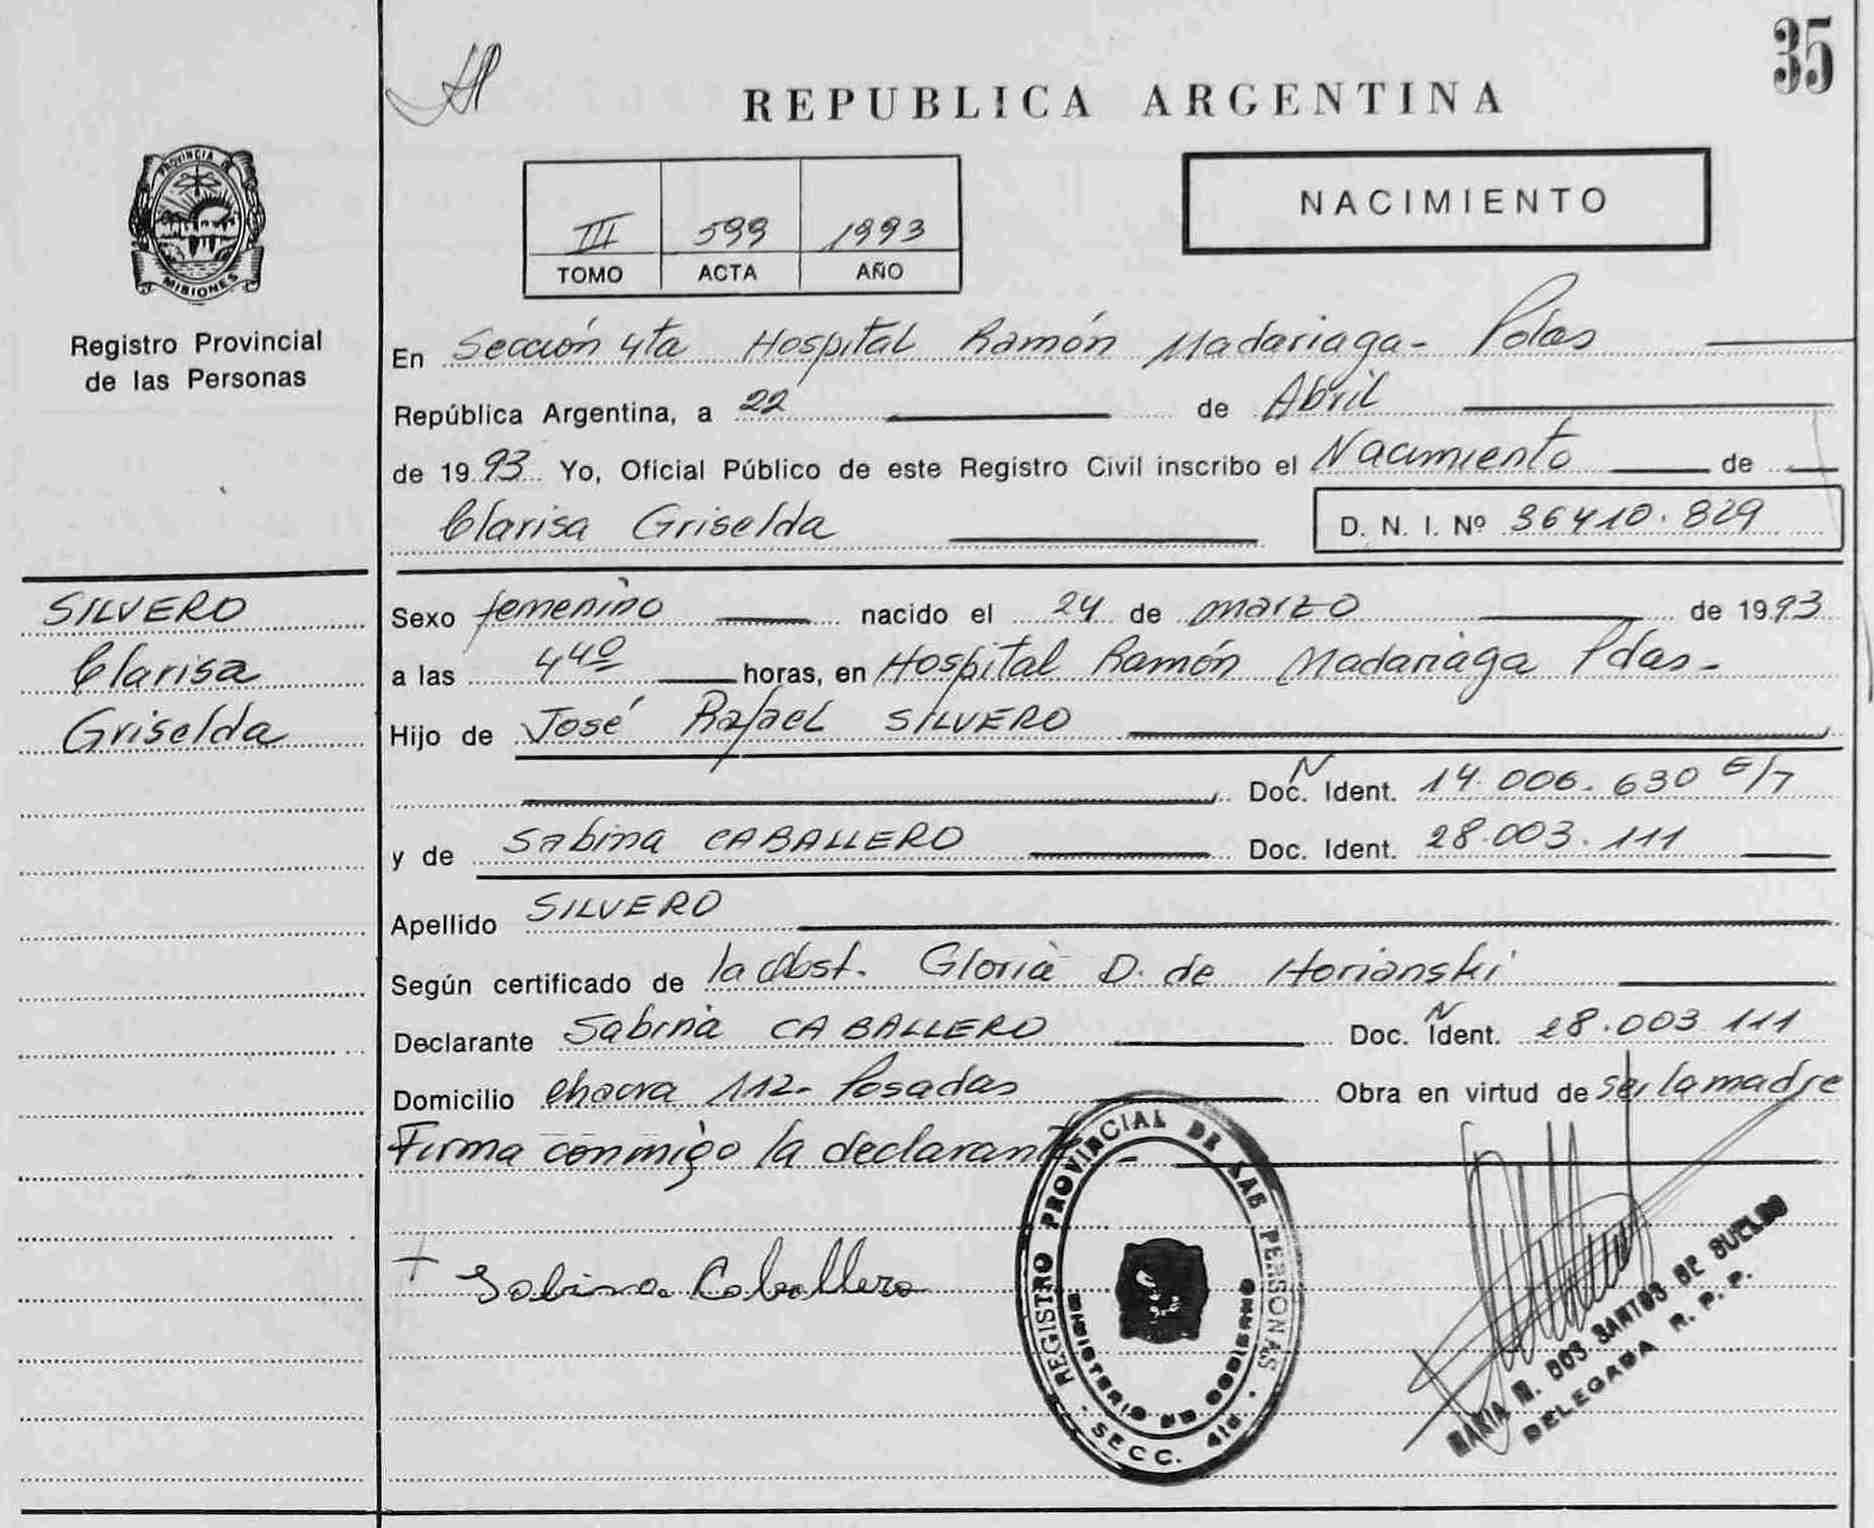 35
REPUBLICA ARGENTINA
NACIMIENTO
III 599 1993
TOMO ACTA AÑO
PROVINCIA DE MISIONES
Registro Provincial
de las Personas
En Sección 4ta Hospital Ramón Madariaga - Pdas
República Argentina, a 22 de Abril
de 1993 Yo, Oficial Público de este Registro Civil inscribo el Nacimiento de
Clarisa Griselda D. N. I. Nº 36410.829
SILVERO
Clarisa
Griselda
Sexo femenino nacido el 24 de marzo de 1993
a las 4 40 horas, en Hospital Ramón Madariaga Pdas -
Hijo de José Rafael SILVERO
N
Doc. Ident. 14.006.630 E/T
y de Sabina CABALLERO Doc. Ident. 28.003.111
Apellido SILVERO
Según certificado de la Obst. Gloria D. de Horianski
Declarante Sabina CABALLERO Doc. N Ident. 28.003 111
Domicilio chacra 112 - Posadas Obra en virtud de ser la madre
Firma conmigo la declarante -
Sabina Caballero
REGISTRO PROVINCIAL DE LAS PERSONAS
MINISTERIO DE GOBIERNO
SECC. 4ta.
MARIA M. DOS SANTOS DE SUELDO
DELEGADA R. P. P.